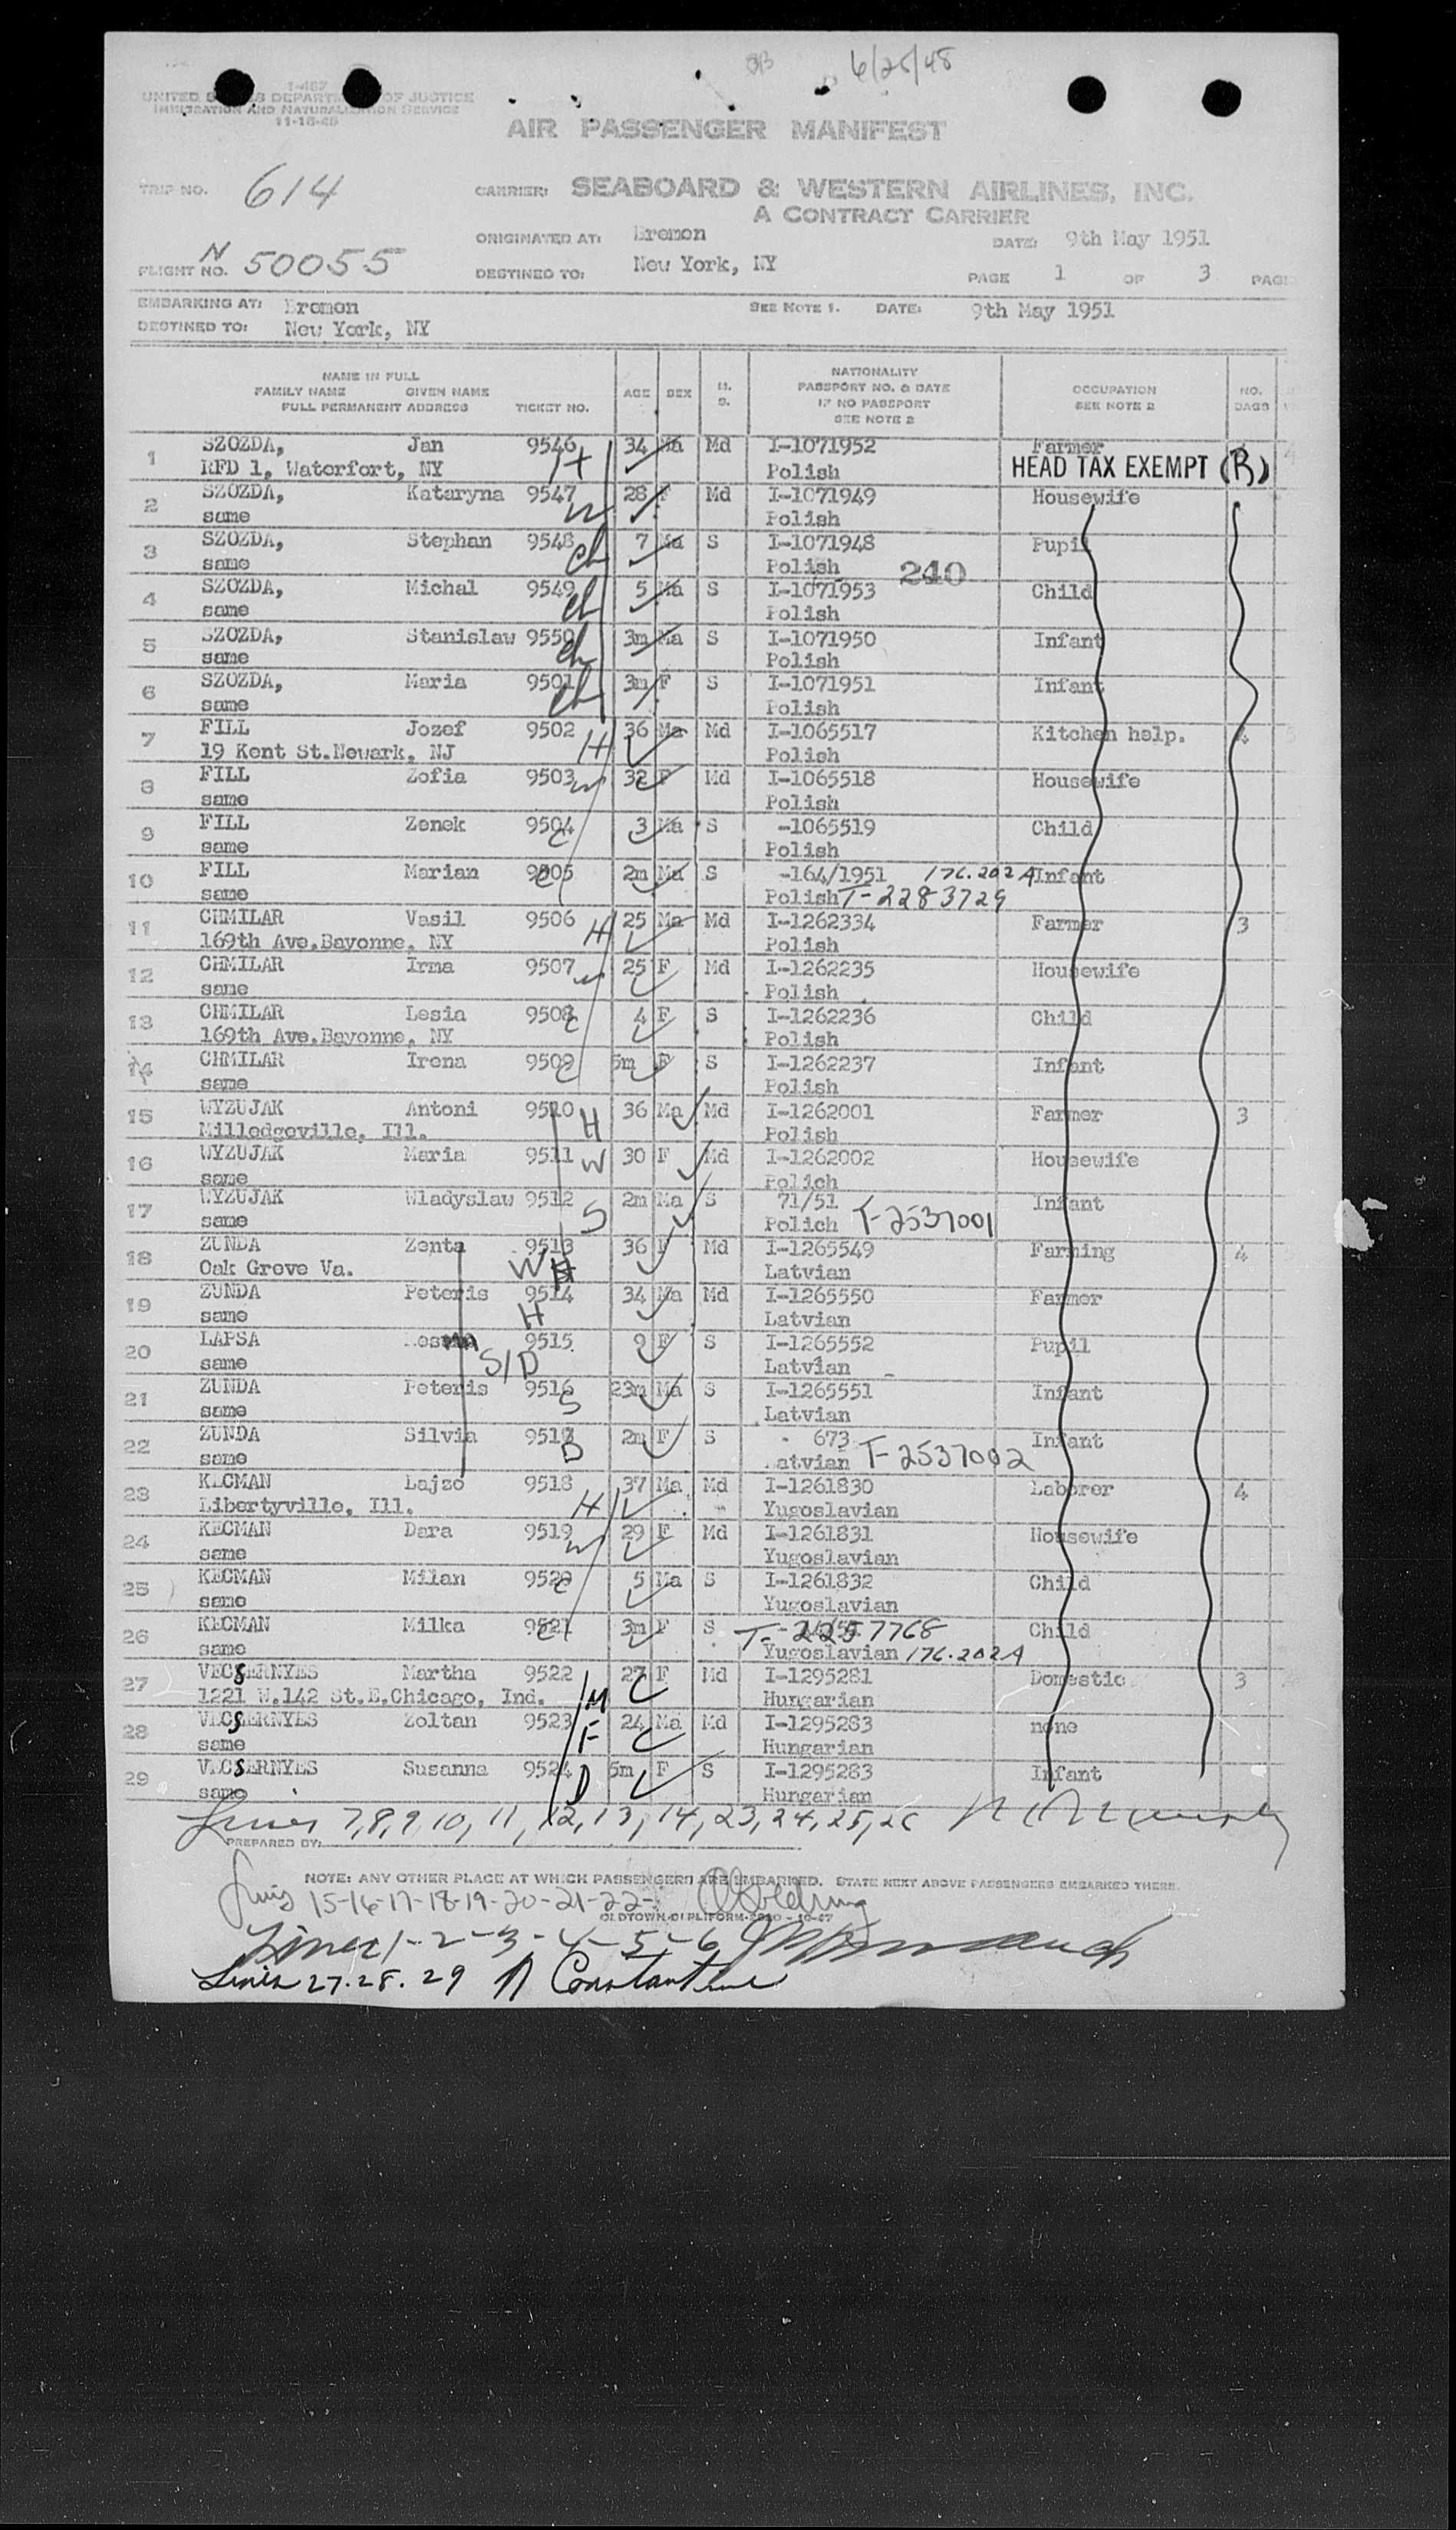 6/25/48
I-467
UNITED STATES DEPARTMENT OF JUSTICE
IMMIGRATION AND NATURALIZATION SERVICE
11-15-45
AIR PASSENGER MANIFEST
TRIP NO. 614 CARRIER: SEABOARD & WESTERN AIRLINES, INC.
A CONTRACT CARRIER
ORIGINATED AT: Bremen DATE: 9th May 1951
FLIGHT NO. N 50055 DESTINED TO: New York, NY PAGE 1 OF 3 PAG
EMBARKING AT: Bremen SEE NOTE 1. DATE: 9th May 1951
DESTINED TO: New York, NY
NAME IN FULL
FAMILY NAME GIVEN NAME
FULL PERMANENT ADDRESS TICKET NO. AGE SEX M. S. NATIONALITY PASSPORT NO. & DATE IF NO PASSPORT SEE NOTE 2 OCCUPATION SEE NOTE 2 NO. BAGS
1 SZOZDA, Jan 9546 H 34 Ma Md I-1071952 Farmer
RFD 1, Waterfort, NY Polish HEAD TAX EXEMPT (B)
2 SZOZDA, Kataryna 9547 W 28 F Md I-1071949 Housewife
same Polish
3 SZOZDA, Stephan 9548 ch 7 Ma S I-1071948 Pupil
same Polish 240
4 SZOZDA, Michal 9549 ch 5 Ma S I-1071953 Child
same Polish
5 SZOZDA, Stanislaw 9550 ch 3m Ma S I-1071950 Infant
same Polish
6 SZOZDA, Maria 9501 ch 3m F S I-1071951 Infant
same Polish
7 FILL Jozef 9502 H 36 Ma Md I-1065517 Kitchen help. 4
19 Kent St.Newark, NJ Polish
8 FILL Zofia 9503 W 32 F Md I-1065518 Housewife
same Polish
9 FILL Zenek 9504 C 3 Ma S -1065519 Child
same Polish
10 FILL Marian 9505 C 2m Ma S -164/1951 176.202A Infant
same Polish T-2283729
11 CHMILAR Vasil 9506 H 25 Ma Md I-1262334 Farmer 3
169th Ave.Bayonne, NY Polish
12 CHMILAR Irma 9507 W 25 F Md I-1262235 Housewife
same Polish
13 CHMILAR Lesia 9508 C 4 F S I-1262236 Child
169th Ave.Bayonne, NY Polish
14 CHMILAR Irena 9509 C 5m F S I-1262237 Infant
same Polish
15 WYZUJAK Antoni 9510 H 36 Ma Md I-1262001 Farmer 3
Milledgeville, Ill. Polish
16 WYZUJAK Maria 9511 W 30 F Md I-1262002 Housewife
same Polich
17 WYZUJAK Wladyslaw 9512 S 2m Ma S 71/51 Infant
same Polich T-2537001
18 ZUNDA Zenta 9513 W 36 F Md I-1265549 Farming 4
Oak Grove Va. Latvian
19 ZUNDA Peteris 9514 H 34 Ma Md I-1265550 Farmer
same Latvian
20 LAPSA 9515 S/D 9 F S I-1265552 Pupil
same Latvian
21 ZUNDA Peteris 9516 S 23m Ma S I-1265551 Infant
same Latvian
22 ZUNDA Silvia 9517 D 2m F S 673 Infant
same atvian T-2537002
23 KECMAN Lajzo 9518 H 37 Ma Md I-1261830 Laborer 4
Libertyville, Ill. Yugoslavian
24 KECMAN Dara 9519 W 29 F Md I-1261831 Housewife
same Yugoslavian
25 KECMAN Milan 9520 C 5 Ma S I-1261832 Child
same Yugoslavian
26 KECMAN Milka 9521 C 3m F S T-2257768 Child
same Yugoslavian 176.202A
27 VECSERNYES Martha 9522 M 27 F Md I-1295281 Domestic 3
1221 W.142 St.E.Chicago, Ind. Hungarian
28 VECSERNYES Zoltan 9523 F 24 Ma Md I-1295283 none
same Hungarian
29 VECSERNYES Susanna 9524 D 5m F S I-1295283 Infant
same Hungarian
Lines 7,8,9,10,11,12,13,14,23,24,25,26
PREPARED BY:
NOTE: ANY OTHER PLACE AT WHICH PASSENGERS ARE EMBARKED. STATE NEXT ABOVE PASSENGERS EMBARKED THERE.
Lines 15-16-17-18-19-20-21-22-
Lines 1-2-3-4-5-6
Lines 27.28.29 A Constantine